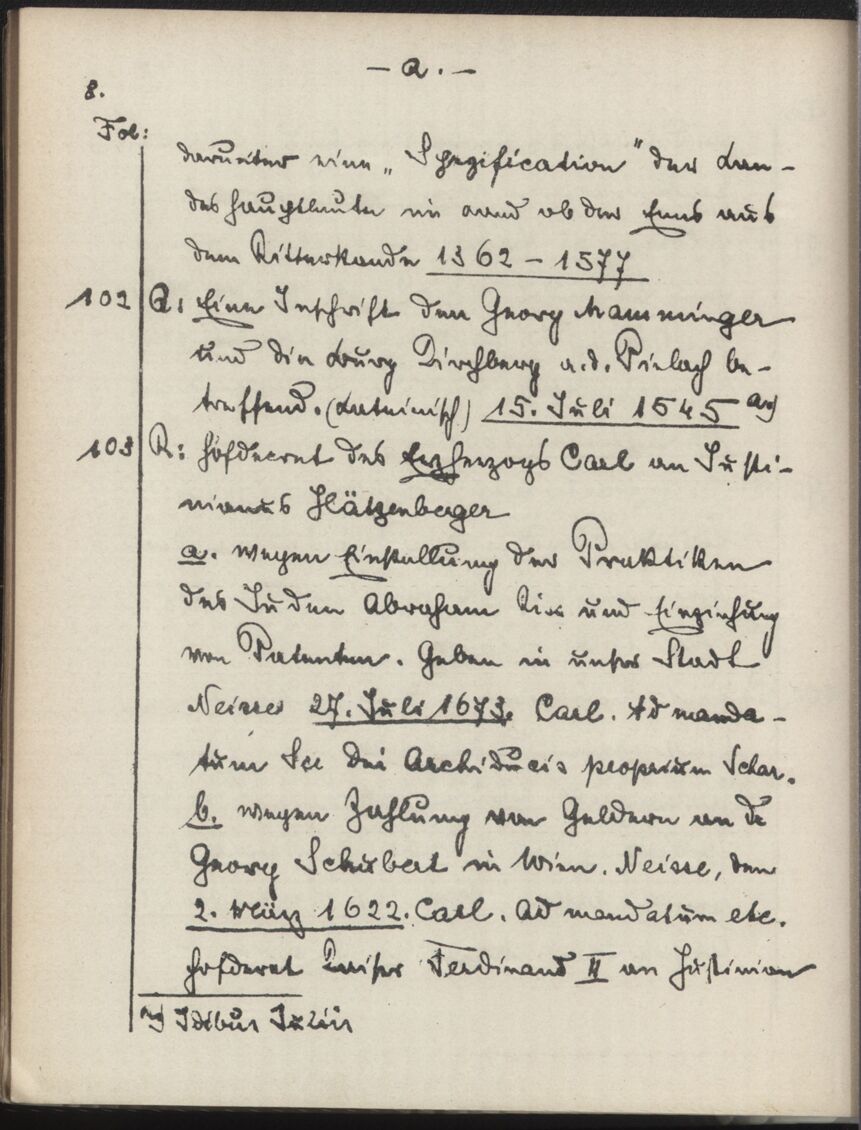 — A. —
8.
Fol:
darunter eine „Spezification" der Lan-
deshauptleute im Land ob der Enns aus
dem Ritterstande 1362 – 1577
102 A: Eine Inschrift den Georg Mamminger
und die Burg Kirchberg a. d. Pielach be-
treffend. (Lateinisch) 15. Juli 1545 a)
103 R: Hofdecret des Erzherzogs Carl an Justi-
nianus Hätzenberger
a. wegen Einstellung der Praktiken
des Juden Abraham Ries und Einziehung
von Patenten. Geben in unser Stadt
Neisse 27. Juli 1673. Carl. Ad manda-
tum Archiducis proprium Schar.
b. wegen Zahlung von Geldern an
Georg Schubert in Wien. Neisse, den
2. März 1622. Carl. Ad mandatum etc.
Hofdecret Kaiser Ferdinand II an Justinian
a) Idibus Juliis